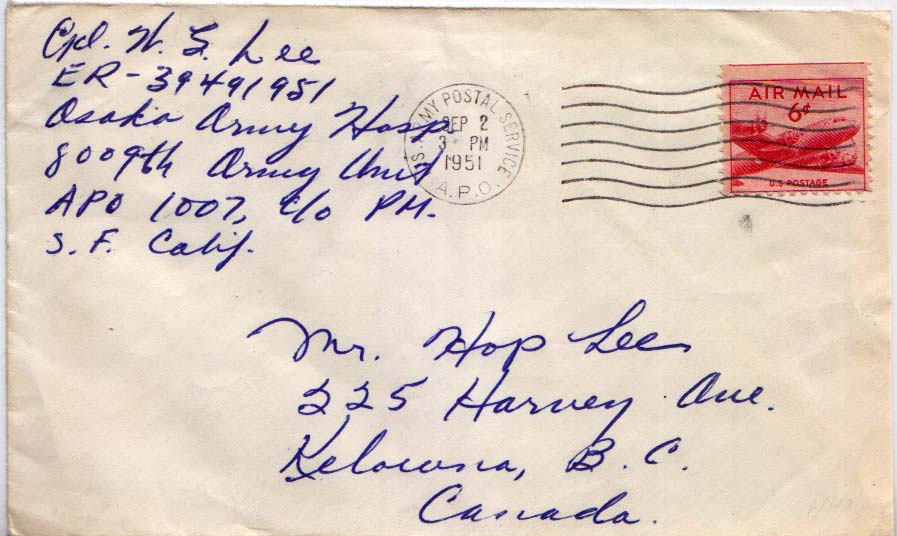 Cpl. W. G. Lee
ER-39491951
Osaka Army Hosp.
8009th Army Unit
APO 1007, c/o PM.
S. F. Calif.
U.S. ARMY POSTAL SERVICE
SEP 2
3 PM
1951
A.P.O.
AIR MAIL
6¢
U.S. POSTAGE
Mr. Hop Lee
225 Harvey Ave.
Kelowna, B. C.
Canada.